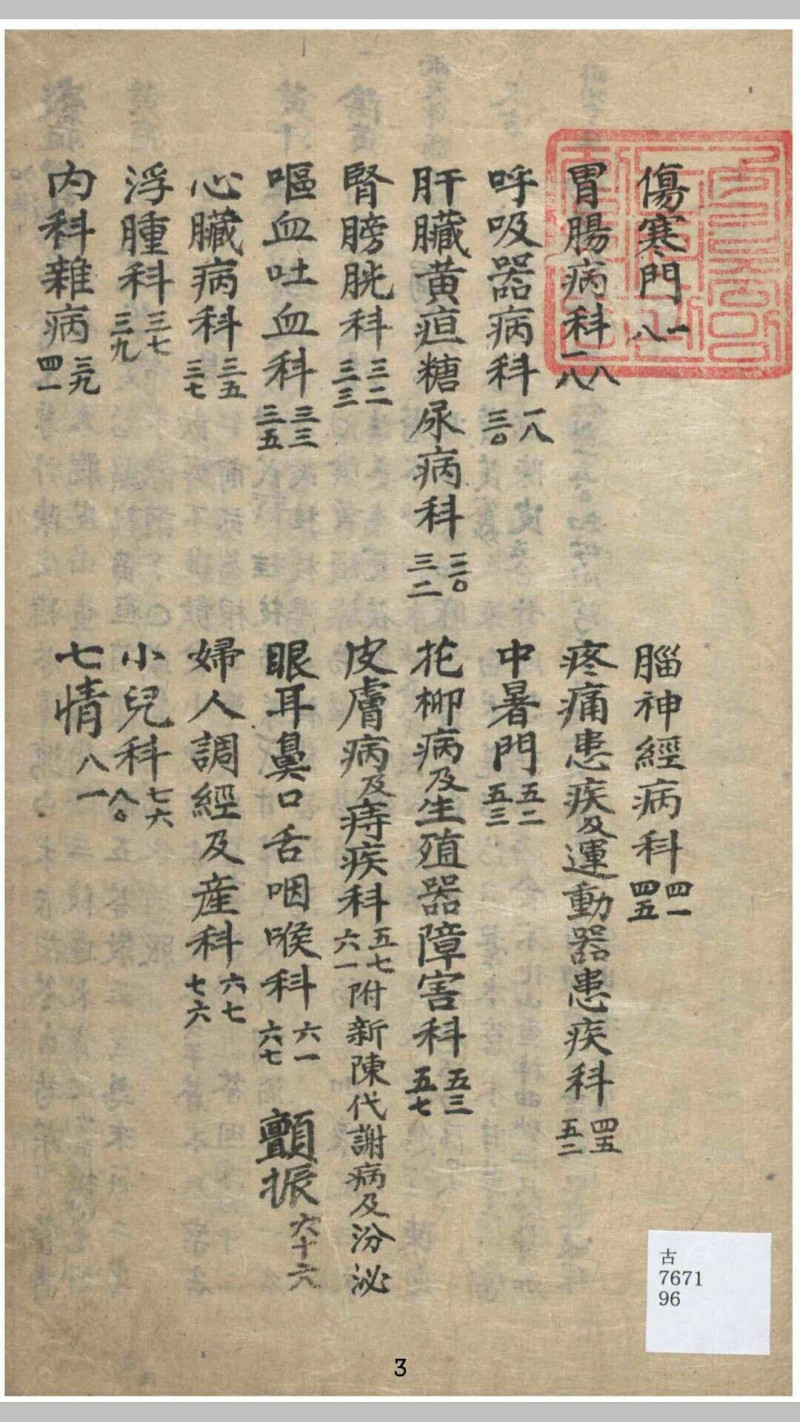 傷寒門 一 八
胃腸病科 八 一八
呼吸器病科 一八 三〇
肝臟黃疸糖尿病科 三〇 三二
腎膀胱科 三二 三三
嘔血吐血科 三三 三五
心臟病科 三五 三七
浮腫科 三七 三九
内科雜病 三九 四一
腦神經病科 四一 四五
疼痛患疾及運動器患疾科 四五 五二
中暑門 五二 五三
花柳病及生殖器障害科 五三 五七
皮膚病及痔疾科 五七 六一 附新陳代謝病及汾泌
眼耳鼻口舌咽喉科 六一 六七 顫振 六十六
婦人調經及産科 六七 七六
小兒科 七六 八〇
七情 八一
古
7671
96
3